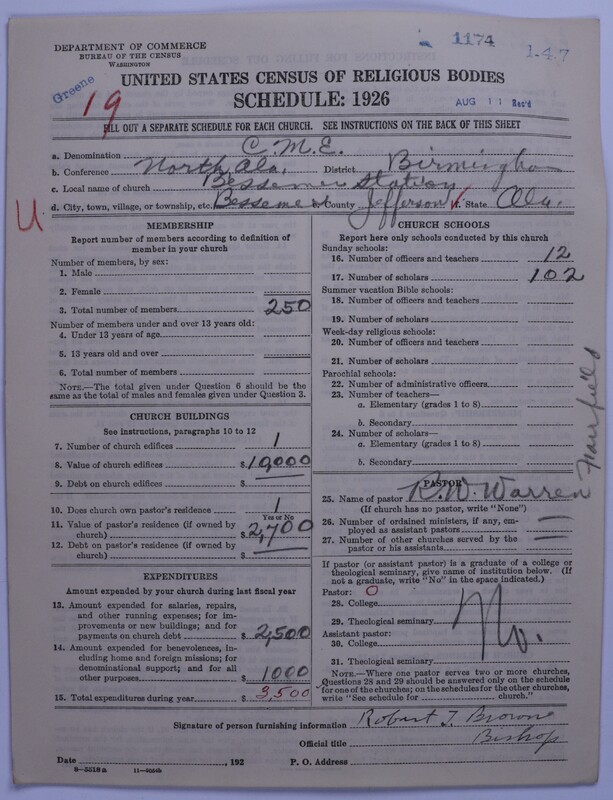 1174
1-4-7
DEPARTMENT OF COMMERCE
BUREAU OF THE CENSUS
WASHINGTON
Greene
19
UNITED STATES CENSUS OF RELIGIOUS BODIES
SCHEDULE: 1926
AUG 11 Rec'd
FILL OUT A SEPARATE SCHEDULE FOR EACH CHURCH. SEE INSTRUCTIONS ON THE BACK OF THIS SHEET
a. Denomination C.M.E.
b. Conference North Ala. District Birmingham
c. Local name of church Bessemer Station
d. City, town, village, or township, etc. Bessemer County Jefferson State Ala.
U
MEMBERSHIP
Report number of members according to definition of
member in your church
Number of members, by sex:
1. Male
2. Female
3. Total number of members 250
Number of members under and over 13 years old:
4. Under 13 years of age
5. 13 years old and over
6. Total number of members
NOTE.—The total given under Question 6 should be the
same as the total of males and females given under Question 3.
CHURCH BUILDINGS
See instructions, paragraphs 10 to 12
7. Number of church edifices 1
8. Value of church edifices $10,000
9. Debt on church edifices $
10. Does church own pastor's residence 1
Yes or No
11. Value of pastor's residence (if owned by
church) $2,700
12. Debt on pastor's residence (if owned by
church) $
EXPENDITURES
Amount expended by your church during last fiscal year
13. Amount expended for salaries, repairs,
and other running expenses; for im-
provements or new buildings; and for
payments on church debt $2,500
14. Amount expended for benevolences, in-
cluding home and foreign missions; for
denominational support; and for all
other purposes $1000
15. Total expenditures during year $3,500
CHURCH SCHOOLS
Report here only schools conducted by this church
Sunday schools:
16. Number of officers and teachers 12
17. Number of scholars 102
Summer vacation Bible schools:
18. Number of officers and teachers
19. Number of scholars
Week-day religious schools:
20. Number of officers and teachers
21. Number of scholars
Parochial schools:
22. Number of administrative officers
23. Number of teachers—
a. Elementary (grades 1 to 8)
b. Secondary
24. Number of scholars—
a. Elementary (grades 1 to 8)
b. Secondary
Fairfield
PASTOR
25. Name of pastor R.W. Warren
(If church has no pastor, write "None")
26. Number of ordained ministers, if any, em-
ployed as assistant pastors
27. Number of other churches served by the
pastor or his assistants
If pastor (or assistant pastor) is a graduate of a college or
theological seminary, give name of institution below. (If
not a graduate, write "No" in the space indicated.)
Pastor: O
28. College
29. Theological seminary No.
Assistant pastor:
30. College
31. Theological seminary
NOTE.—Where one pastor serves two or more churches,
Questions 28 and 29 should be answered only on the schedule
for one of the churches; on the schedules for the other churches,
write "See schedule for church."
Signature of person furnishing information Robert T. Brown
Official title Bishop
Date , 192 P. O. Address